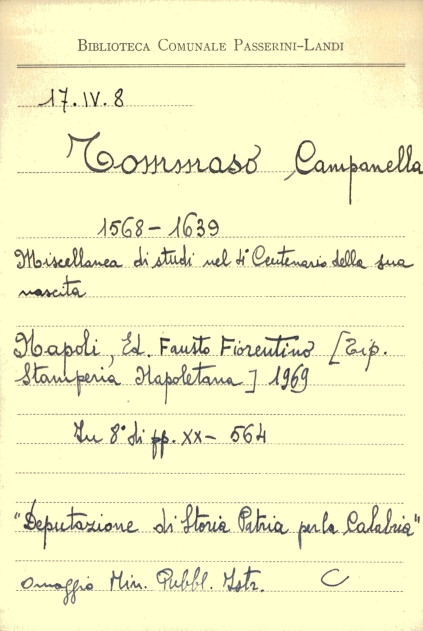 BIBLIOTECA COMUNALE PASSERINI-LANDI
17.IV.8
Tommaso Campanella
1568-1639
Miscellanea di studi nel 4° Centenario della sua
nascita
Napoli, Ed. Fausto Fiorentino [Tip.
Stamperia Napoletana] 1969
In 8° di pp. XX- 564
"Deputazione di Storia Patria per la Calabria"
Omaggio Min. Pubbl. Istr. C